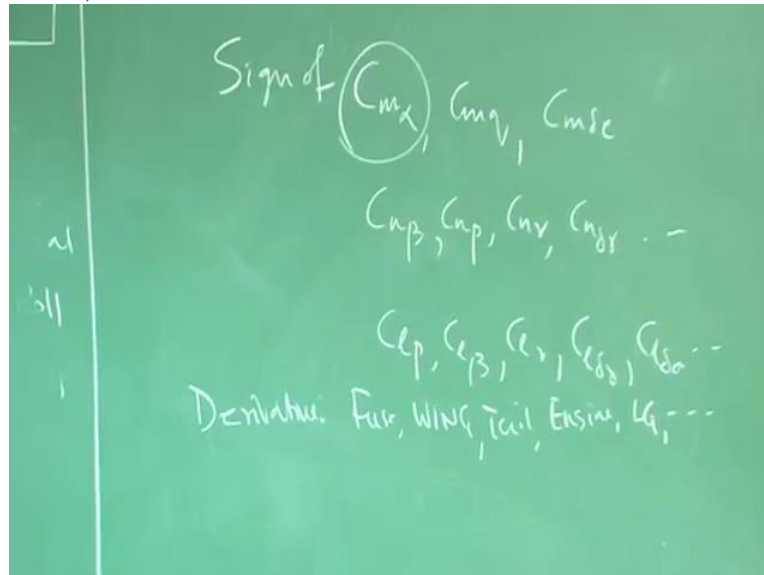 Sign of Cmα, Cmq, Cmδe
Cnβ, Cnp, Cnr, Cnδr --
al
oll
Clp, Clβ, Clr, Clδr, Clδa --
Derivative: Fuse, WING, Tail, Engine, LG, ---